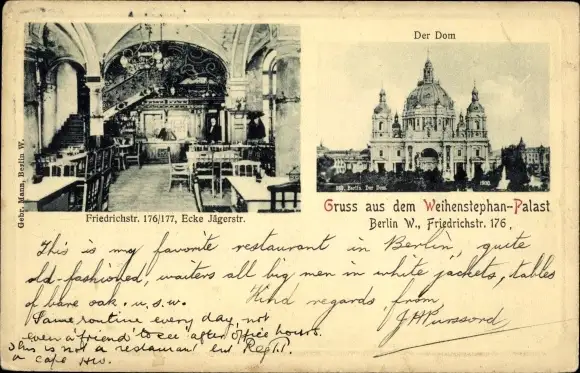 Der Dom
Gebr. Mann, Berlin W.
Berlin. Der Dom.
Friedrichstr. 176/177, Ecke Jägerstr.
Gruss aus dem Weihenstephan-Palast
Berlin W., Friedrichstr. 176.
This is my favorite restaurant in Berlin, quite
old-fashioned, waiters all big men in white jackets, tables
of bare oak. u.s.w. Kind regards from
Same routine every day, not
even a 'friend' to see after office hours.
This is not a restaurant but
a cafe HW.